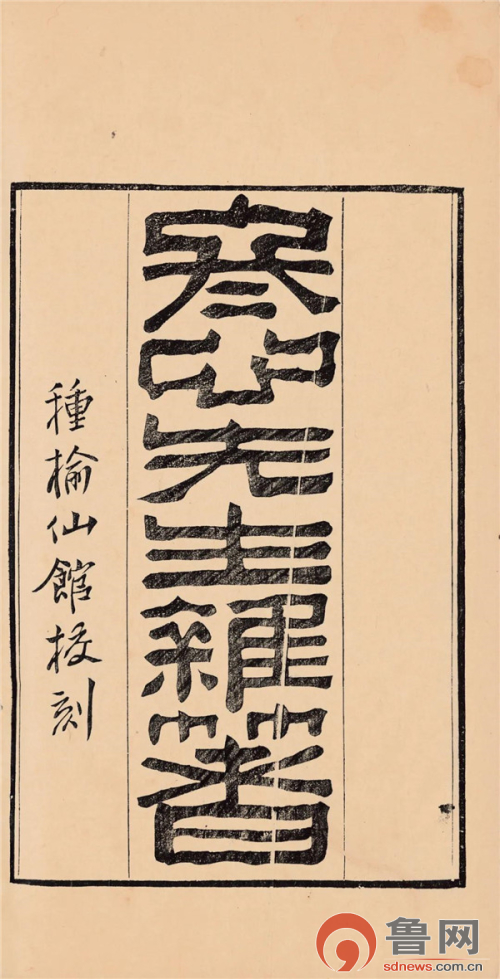 冬心先生雜著
種榆仙館校刻
鲁网
sdnews.com.cn